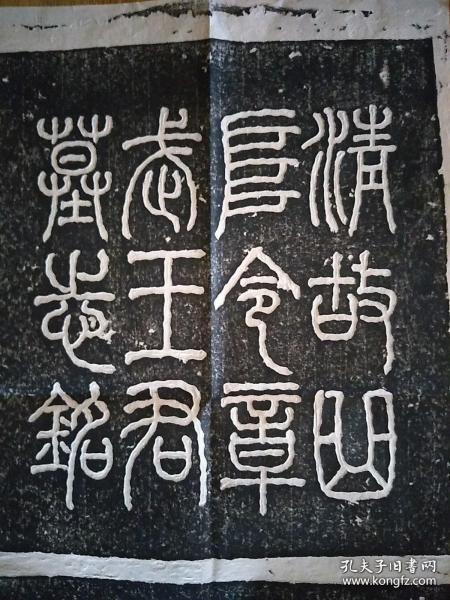 清故曲
阜令章
武王君
墓志銘
孔夫子旧书网
www.kongfz.com